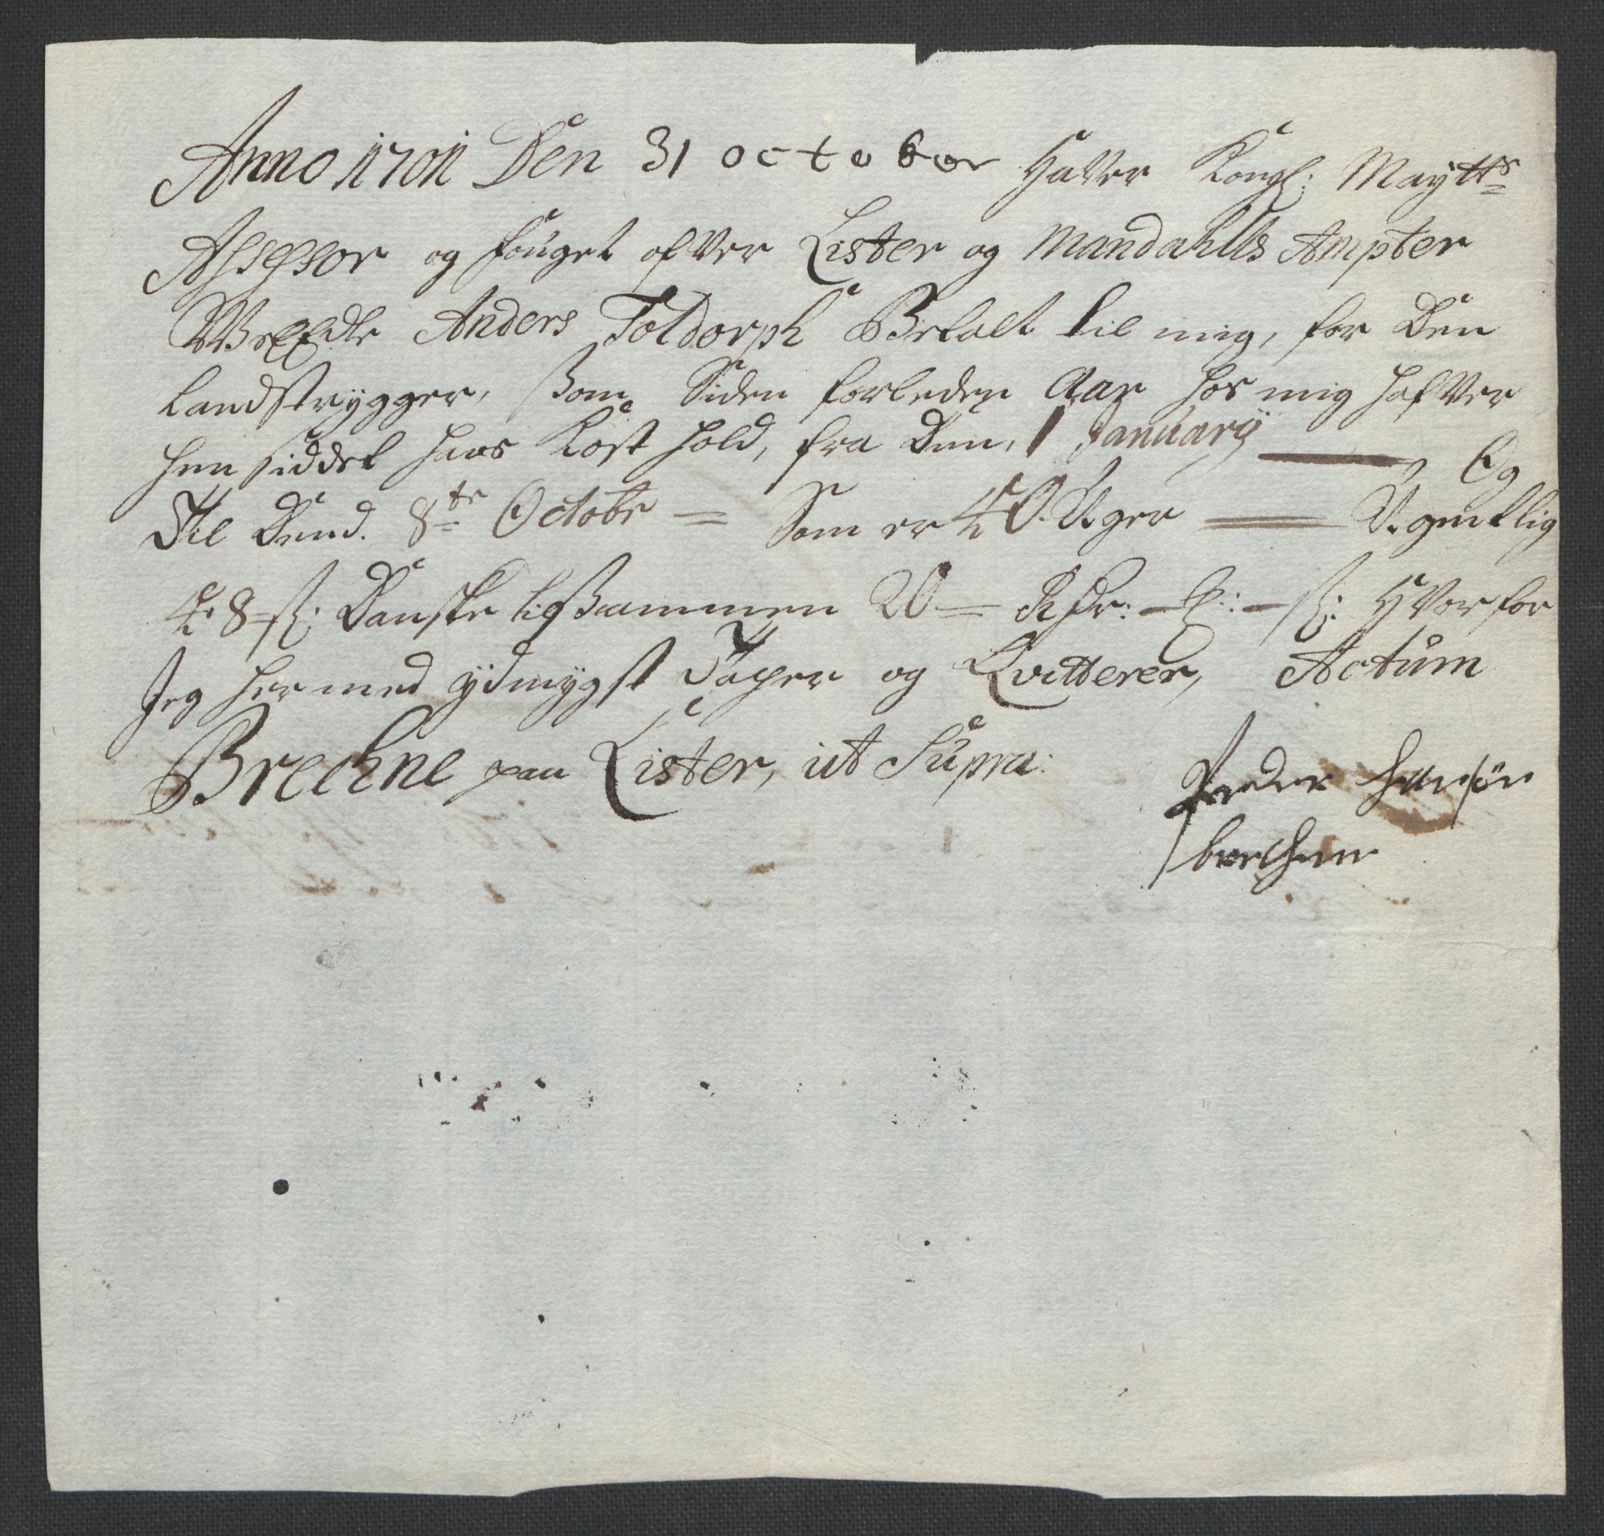 Anno 1701 Den 31 october Haver Kongl: Maytts
Assessor og fouget ofver Lister og Mandahlls Ampter
Anders Toldorph Betalt til mig, for Den
Landstrygger, Som Siden forleden Aar hos mig hafver
hensiddet hans Kost hold, fra Den, 1 January og
til Dend. 8te Octobr = Som er 40 Uger Ugentlig
á 8 s: Danske tilsammen 20 = Rdr: - : - s: Hvorfor
Jeg hermed ydmygst Tacher og Qvitterer, Actum
Brechne paa Lister, ut Supra:
Peder hansøn
brechne